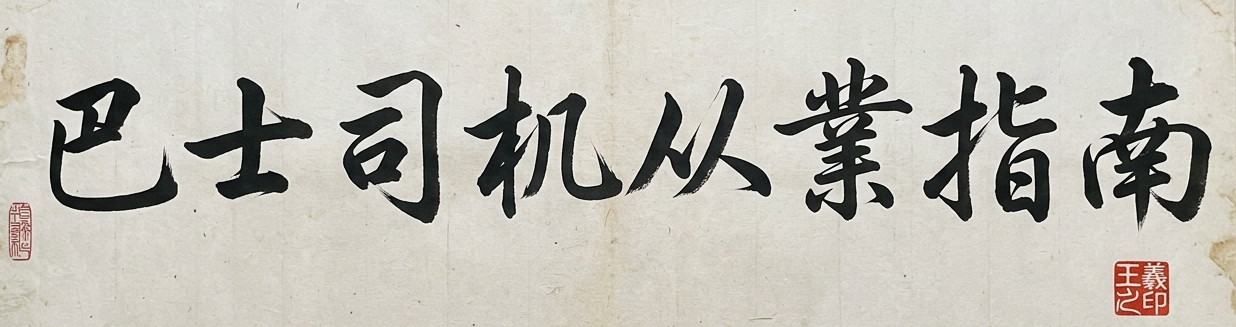 巴士司机从業指南
王羲之印